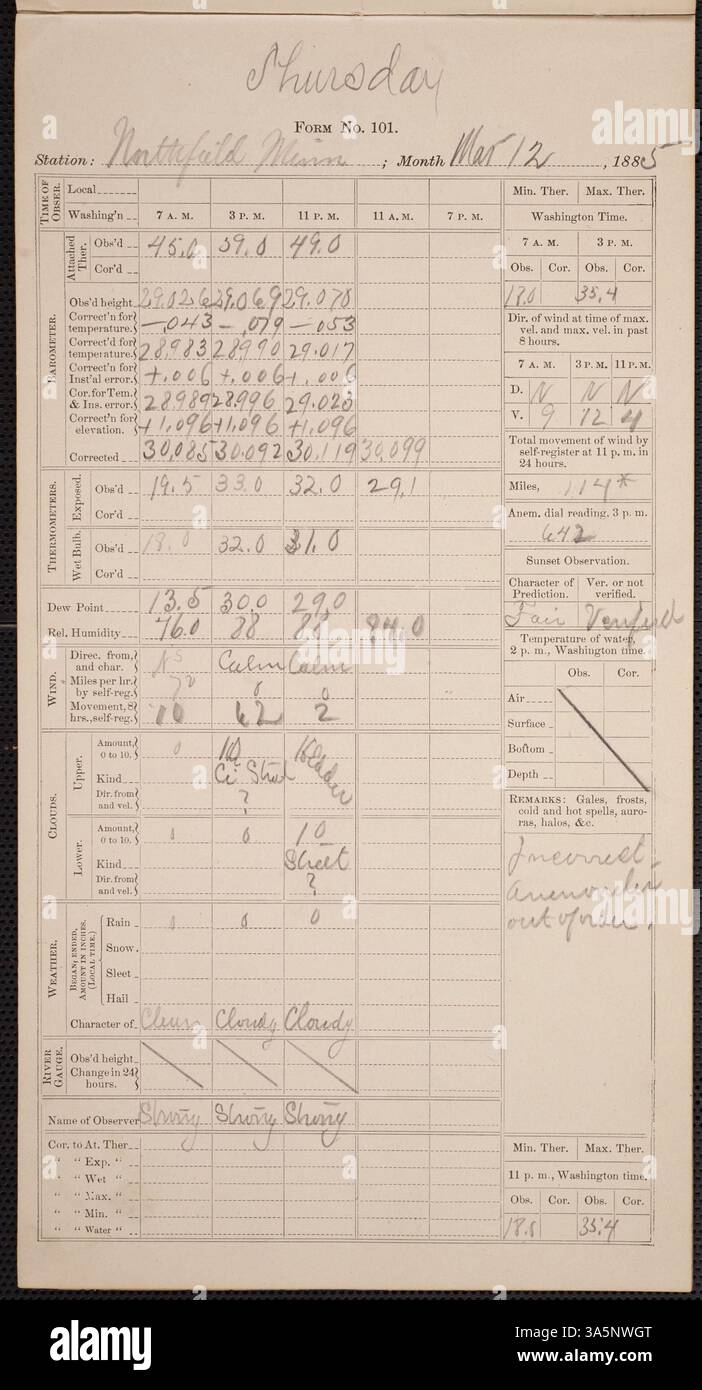 Thursday
FORM No. 101.
Station: Northfield Minn ; Month Mar 12, 1885
TIME OF OBSER. Local
Washing'n 7 A. M. 3 P. M. 11 P. M. 11 A. M. 7 P. M.
Min. Ther. Max. Ther.
Washington Time.
7 A. M. 3 P. M.
Obs. Cor. Obs. Cor.
18.0 35.4
BAROMETER.
Attached Ther. Obs'd 45.0 59.0 49.0
Cor'd
Obs'd height 29.026 29.069 29.070
Correct'n for temperature. —.043 —.079 —.053
Correct'd for temperature. 28.983 28.990 29.017
Correct'n for Inst'al error. +.006 +.006 +.006
Cor. for Tem. & Ins. error. 28.989 28.996 29.023
Correct'n for elevation. +1.096 +1.096 +1.096
Corrected 30.085 30.092 30.119 30.099
Dir. of wind at time of max. vel. and max. vel. in past 8 hours.
7 A. M. 3 P.M. 11 P.M.
D. N N N
V. 9 12 4
Total movement of wind by self-register at 11 p. m. in 24 hours.
Miles, 114*
Anem. dial reading, 3 p. m.
642
THERMOMETERS.
Exposed. Obs'd 19.5 33.0 32.0 29.1
Cor'd
Wet Bulb. Obs'd 18.0 32.0 31.0
Cor'd
Dew Point 13.5 30.0 29.0
Rel. Humidity 76.0 88 88 84.0
Sunset Observation.
Character of Prediction. Ver. or not verified.
Fair Verified
Temperature of water, 2 p. m., Washington time.
Obs. Cor.
Air
Surface
Bottom
Depth
WIND.
Direc. from, and char. Calm Calm
Miles per hr. by self-reg. 0 0
Movement, 8 hrs., self-reg. 62 2
CLOUDS.
Upper. Amount, 0 to 10. 0 10
Kind Ci Strat
Dir. from and vel. ?
Lower. Amount, 0 to 10. 0 0 10
Kind Street
Dir. from and vel. ?
REMARKS: Gales, frosts, cold and hot spells, auroras, halos, &c.
Incorrect
out of order.
WEATHER.
BEGAN; ENDED, AMOUNT IN INCHES. (LOCAL TIME.)
Rain 0 0 0
Snow.
Sleet
Hail
Character of Clear Cloudy Cloudy
RIVER GAUGE.
Obs'd height
Change in 24 hours.
Name of Observer Strong Strong Strong
Cor. to At. Ther.
" " Exp. "
" " Wet "
" " Max. "
" " Min. "
" " Water "
Min. Ther. Max. Ther.
11 p. m., Washington time.
Obs. Cor. Obs. Cor.
18.0 35.4
alamy
Image ID: 3A5NWGT
www.alamy.com